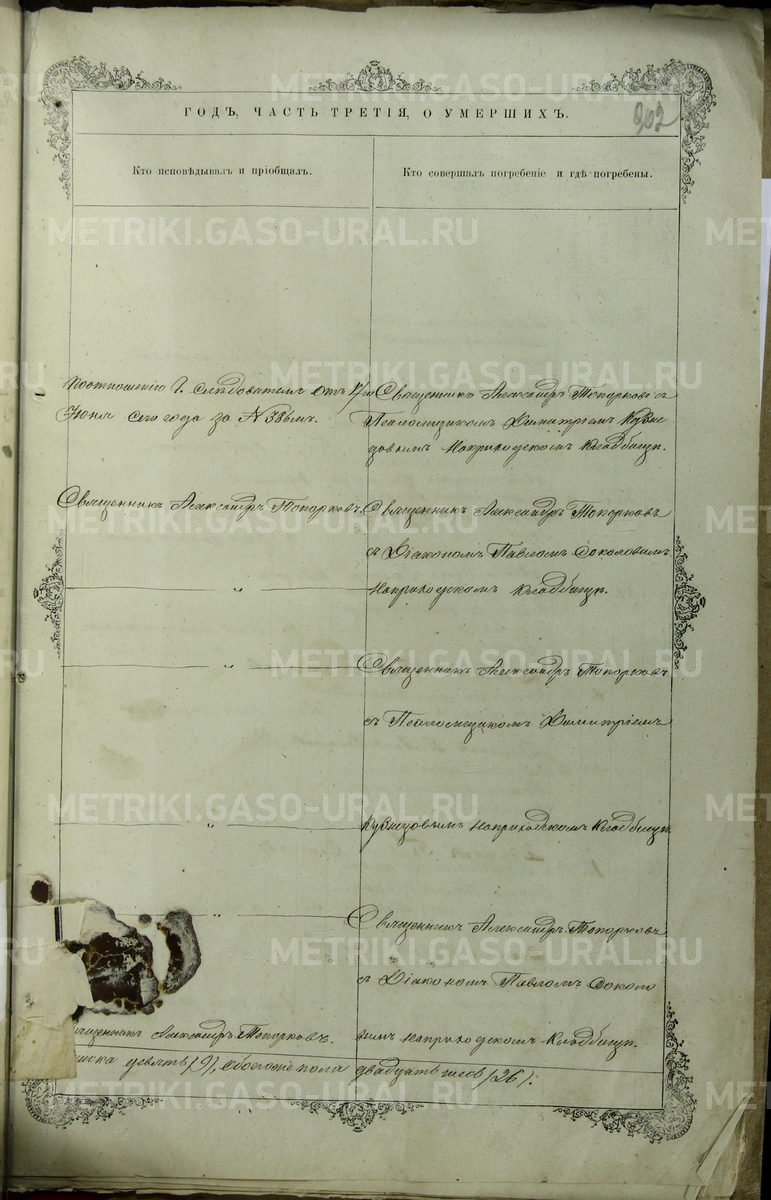 ГОДЪ, ЧАСТЬ ТРЕТІЯ, О УМЕРШИХЪ.
Кто исповѣдывалъ и пріобщалъ.
Кто совершалъ погребеніе и гдѣ погребены.
Поотношенію Г. Слѣдователя отъ
Іюня сего года за №
Священникъ Александръ Топорковъ съ
Псаломщикомъ Димитріемъ Кузне
цовымъ Наприходскомъ Кладбищѣ.
Священникъ Александръ Топорковъ.
Священникъ Александръ Топорковъ
съ Діакономъ Павломъ Соколовымъ
Наприходскомъ Кладбищѣ.
Священникъ Александръ Топорковъ
съ Псаломщикомъ Димитріемъ
Кузнецовымъ Наприходскомъ Кладбищѣ.
Священникъ Александръ Топорковъ
съ Діакономъ Павломъ Соколо
Александръ Топорковъ.
вымъ Наприходскомъ Кладбищѣ.
девять (9), обоегоже пола двадцать шесть (26).
METRIKI.GASO-URAL.RU